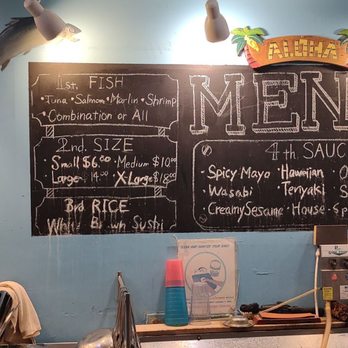 ALOHA
MEN
1st. FISH
• Tuna • Salmon • Marlin • Shrimp
• Combination or All
2nd. SIZE
Small $6.00 • Medium $10.00
Large $14.00 X-Large $18.00
3rd RICE
White Brown Sushi
4th SAUC
• Spicy Mayo • Hawaiian
• Wasabi • Teriyaki
• Creamy Sesame • House